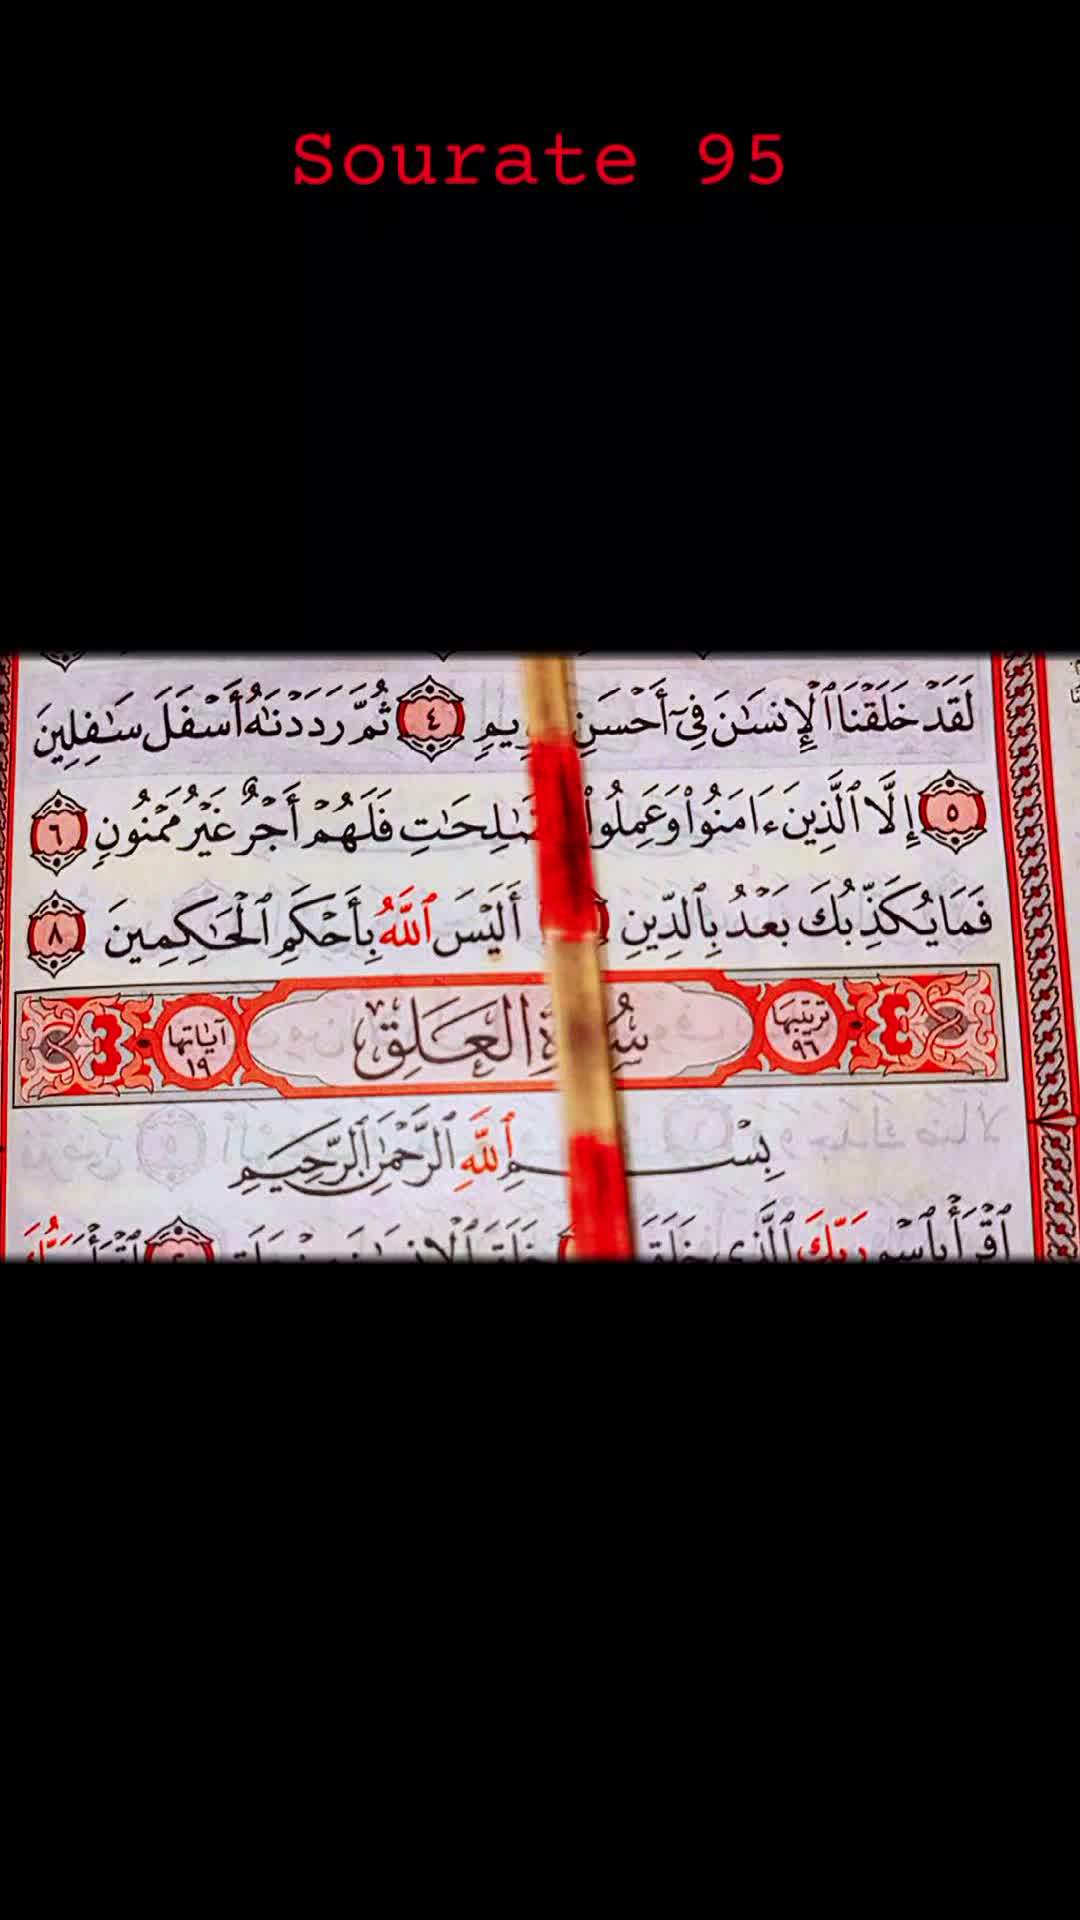 Sourate 95
لَقَدْ خَلَقْنَا ٱلْإِنسَٰنَ فِىٓ أَحْسَنِ ٤ ثُمَّ رَدَدْنَٰهُ أَسْفَلَ سَٰفِلِينَ
٥ إِلَّا ٱلَّذِينَ ءَامَنُوا۟ وَعَمِلُوا۟ فَلَهُمْ أَجْرٌ غَيْرُ مَمْنُونٍ ٦
فَمَا يُكَذِّبُكَ بَعْدُ بِٱلدِّينِ أَلَيْسَ ٱللَّهُ بِأَحْكَمِ ٱلْحَٰكِمِينَ ٨
ترتيبها ٩٦ سُورَةُ العَلَقِ آياتها ١٩
بِسْمِ ٱللَّهِ ٱلرَّحْمَٰنِ ٱلرَّحِيمِ
ٱقْرَأْ بِٱسْمِ رَبِّكَ ٱلَّذِى خَلَقَ